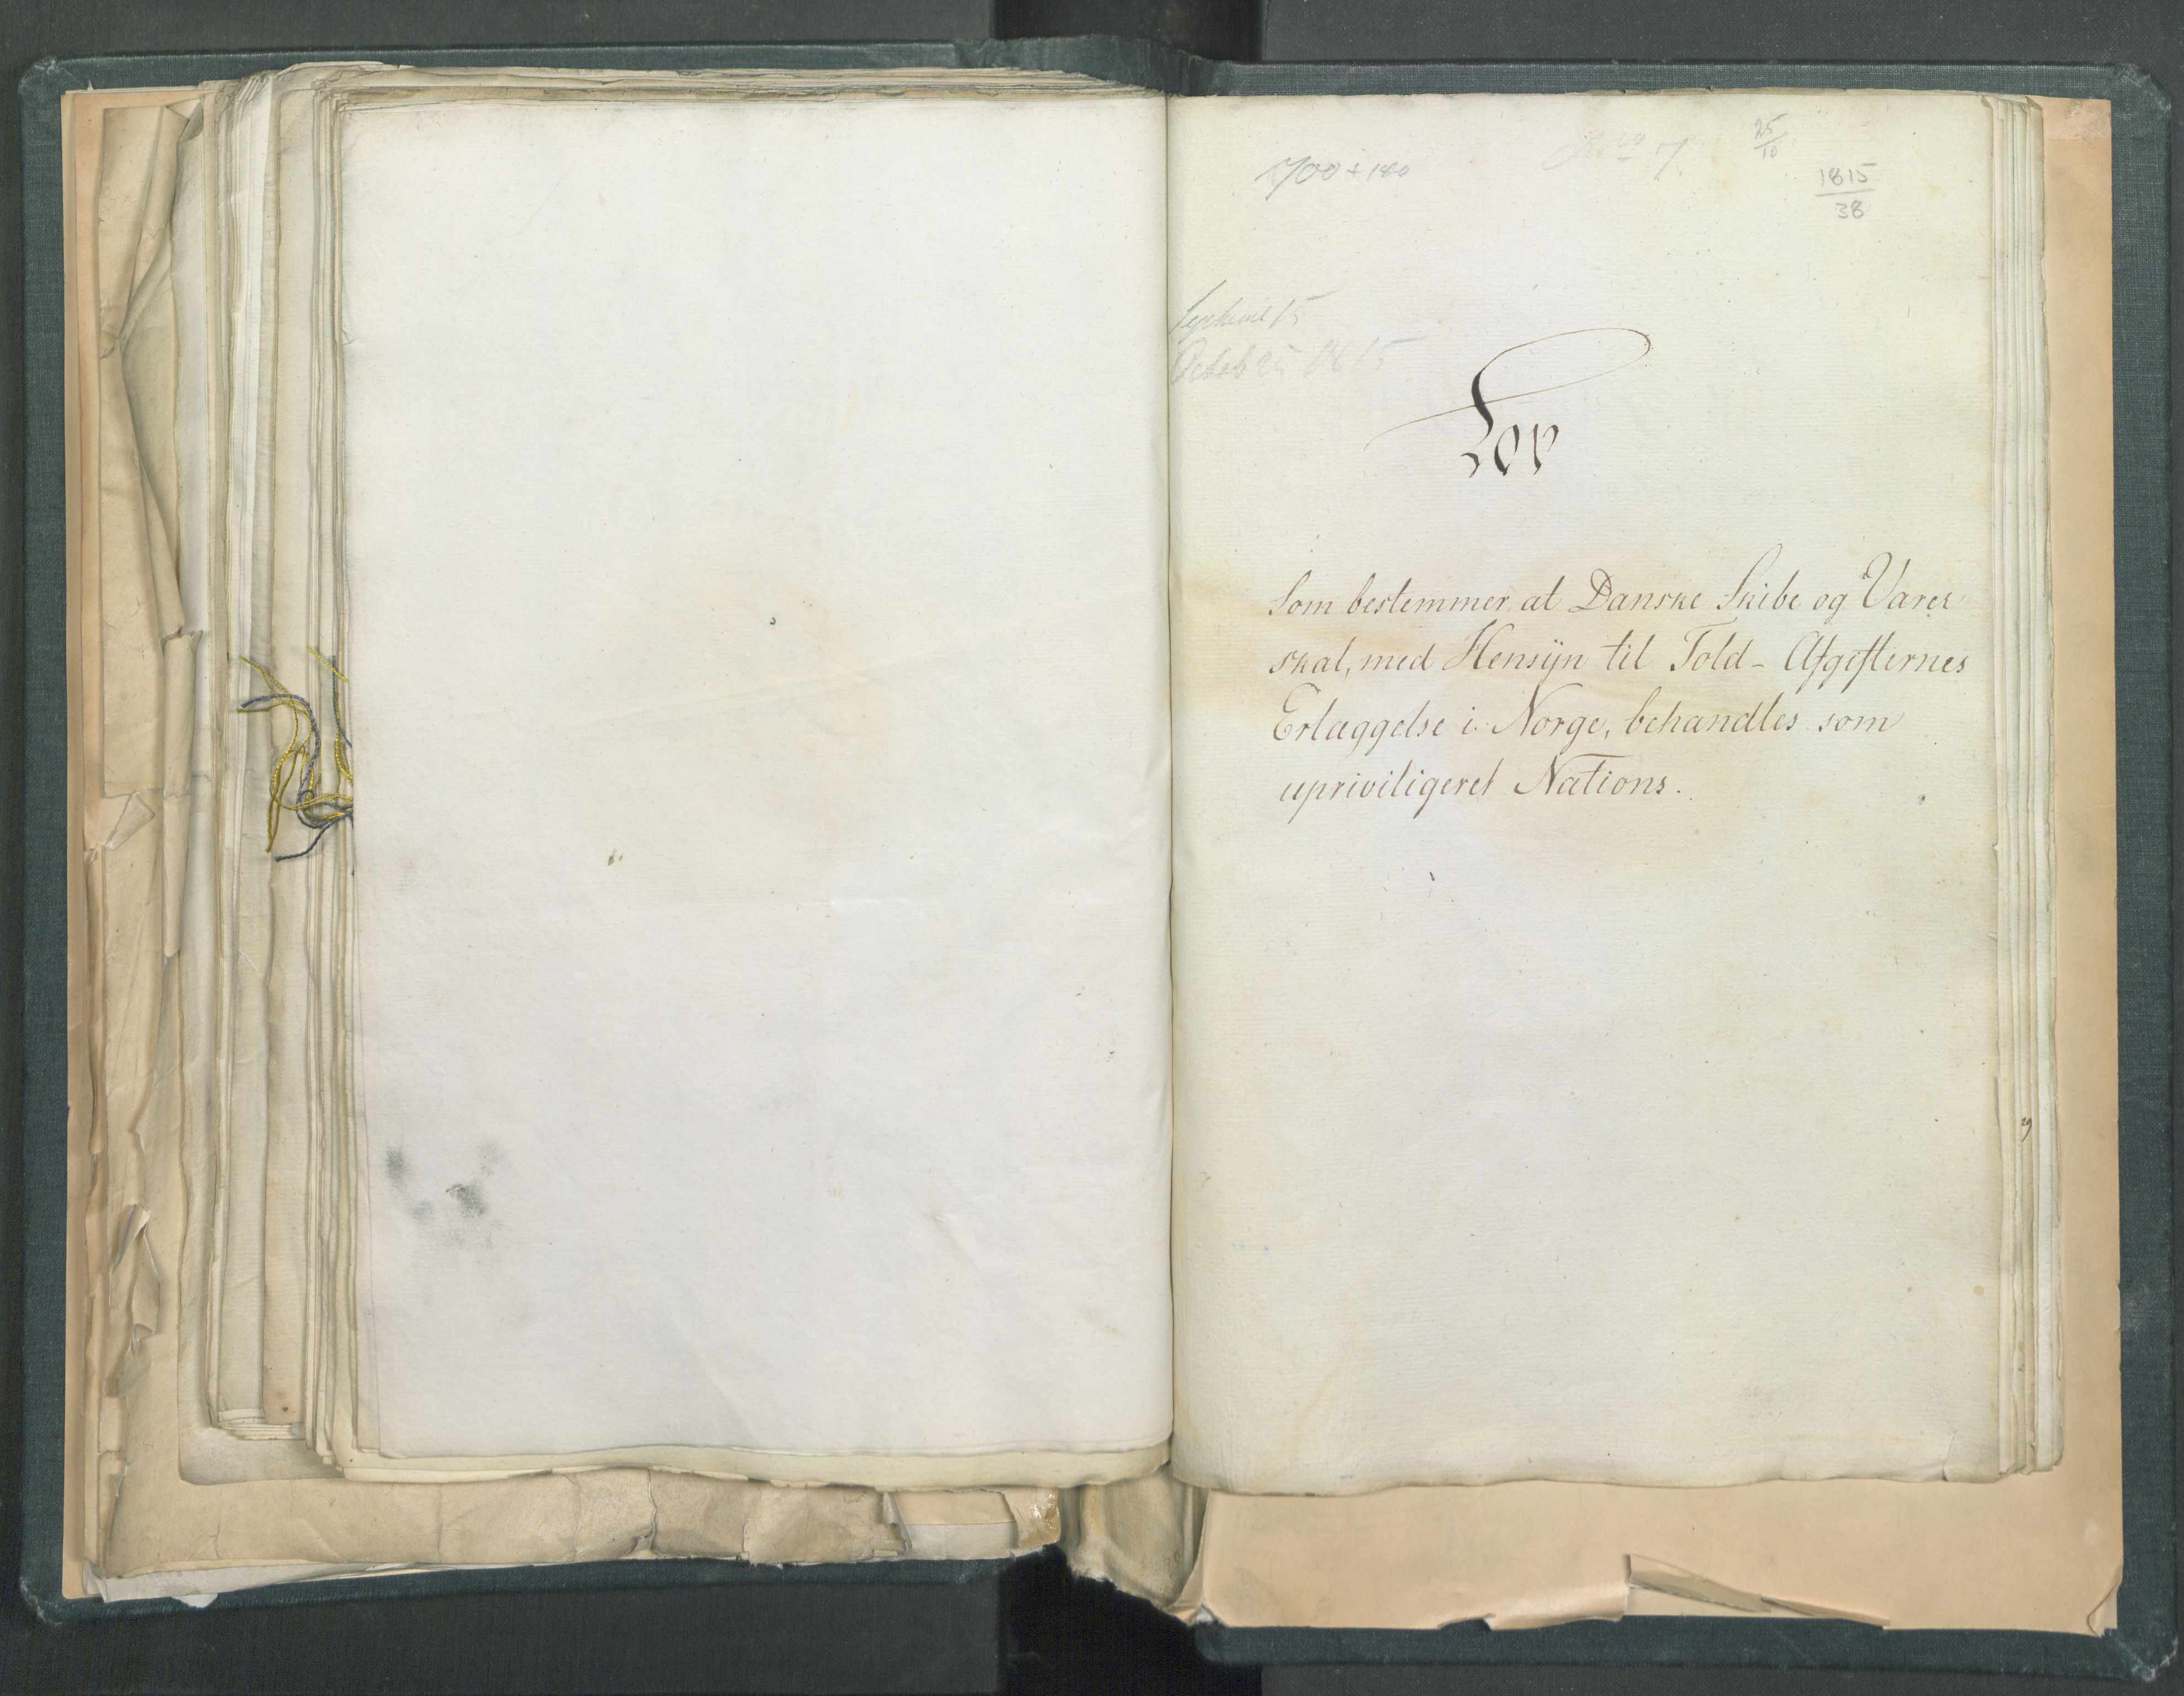 25
10
1815
38
Octob 25 1815
Lov
Som bestemmer, at Danske Skibe og Varer
skal, med Hensÿn til Told- Afgifternes
Erlæggelse i Norge, behandles som
upriviligeret Nations.